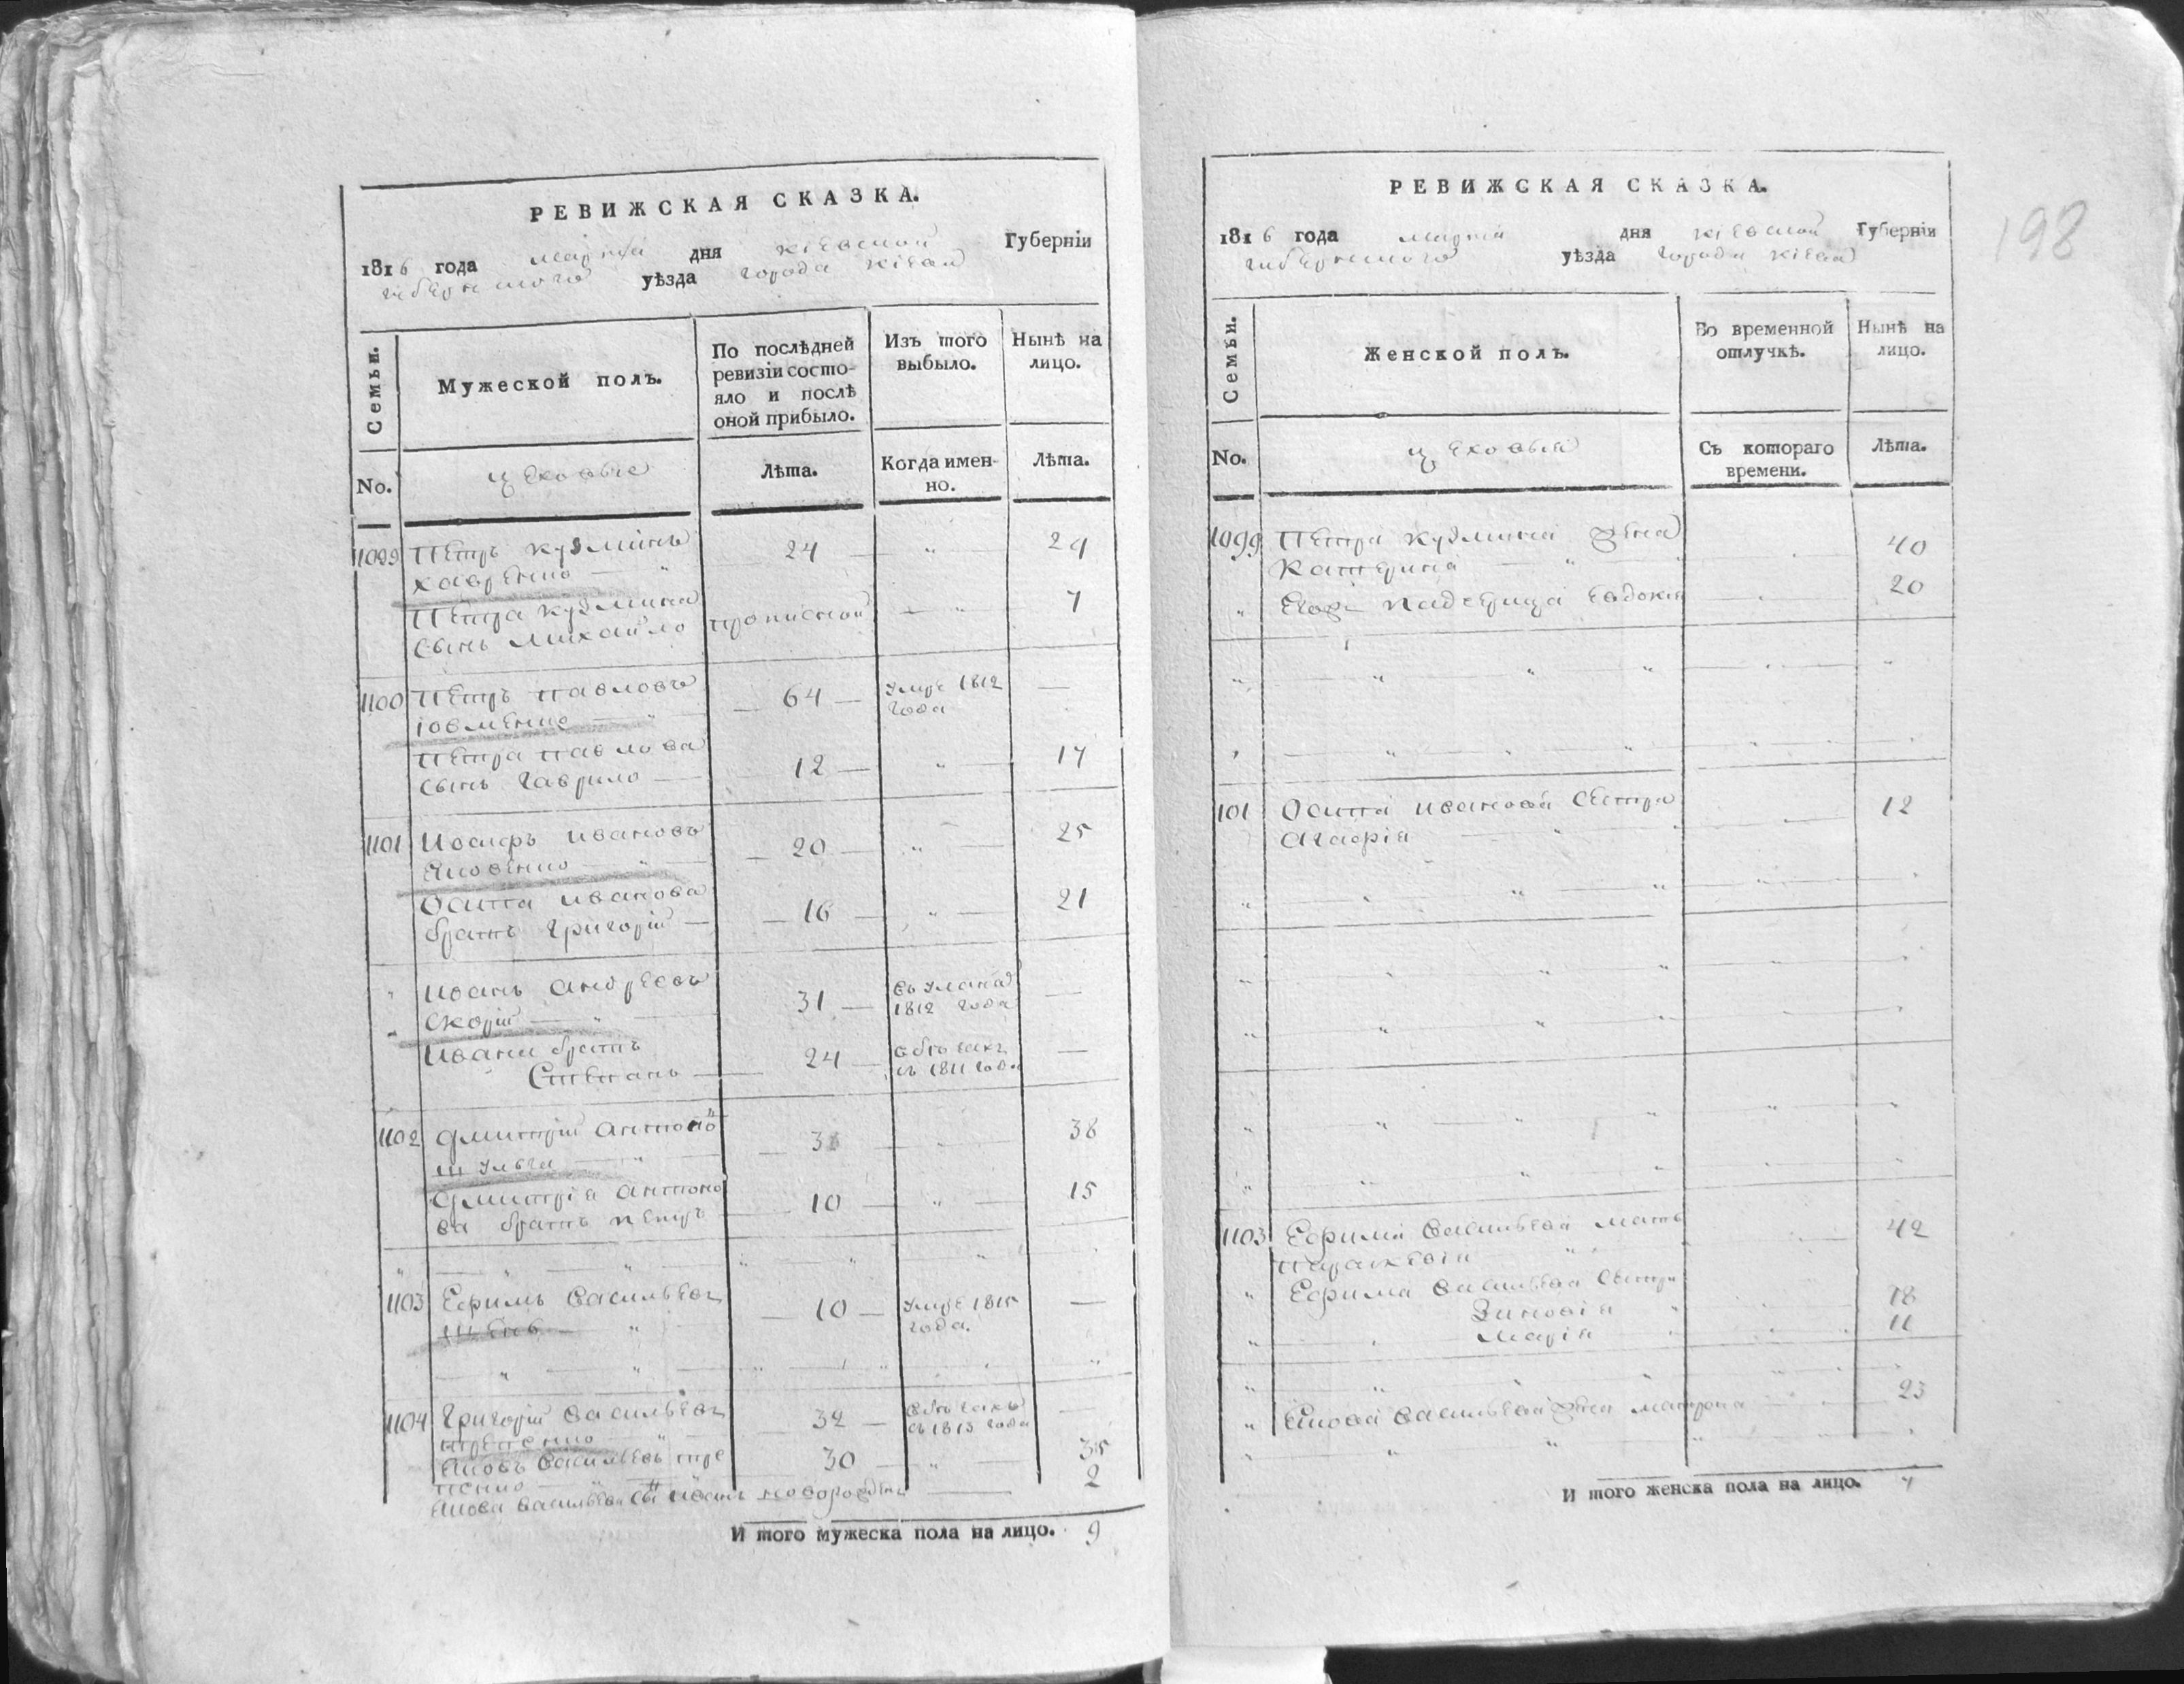 РЕВИЖСКАЯ СКАЗКА.
1816 года марта дня Кіевской Губерніи
губернского уѣзда города Кіева
Семьи.
Мужеской полъ.
По послѣдней ревизіи состояло и послѣ оной прибыло.
Изъ того выбыло.
Нынѣ на лицо.
No.
цеховые
Лѣта.
Когда именно.
Лѣта.
1099 Петръ Кузминъ 24 29
Хавренко
Петра Кузмина прописной 7
сынъ Михайло
1100 Петръ Павловъ 64 умре 1812 года
Іовменко
Петра Павлова
сынъ Гаврило 12 17
1101 Иосифъ Ивановъ 20 25
Яковенко
Осипа Иванова 16 21
братъ Григорій
Иванъ Андреевъ 31 1812 года
Скорій
Ивана братъ 24 съ 1811 года
Степанъ
1102 Дмитрій Антоно 38
Шульга
Дмитрія Антоно 10 15
ва братъ Петръ
1103 Ефимъ Васильевъ 10 умре 1815 года.
1104 Григорій Васильевъ 32 въ бегахъ съ 1813 года
Трепенко
Яковъ Васильевъ Тре 30 35
пенко
Якова Васильева сынъ Иванъ новорожденъ 2
И того мужеска пола на лицо. 9
РЕВИЖСКАЯ СКАЗКА.
1816 года марта дня Кіевской Губерніи
губернского уѣзда города Кіева
198
Семьи.
Женской полъ.
Во временной отлучкѣ.
Нынѣ на лицо.
No.
цеховыя
Съ котораго времени.
Лѣта.
1099 Петра Кузмина жена 40
Катерина
Его падчерица Евдокія 20
101 Осипа Иванова сестра 12
Агафія
1103 Ефима Васильева мать 42
Параскевія
Ефима Васильева сестри
Зиновія 18
Марія 11
Якова Васильева жена Матрона 23
И того женска пола на лицо. 7